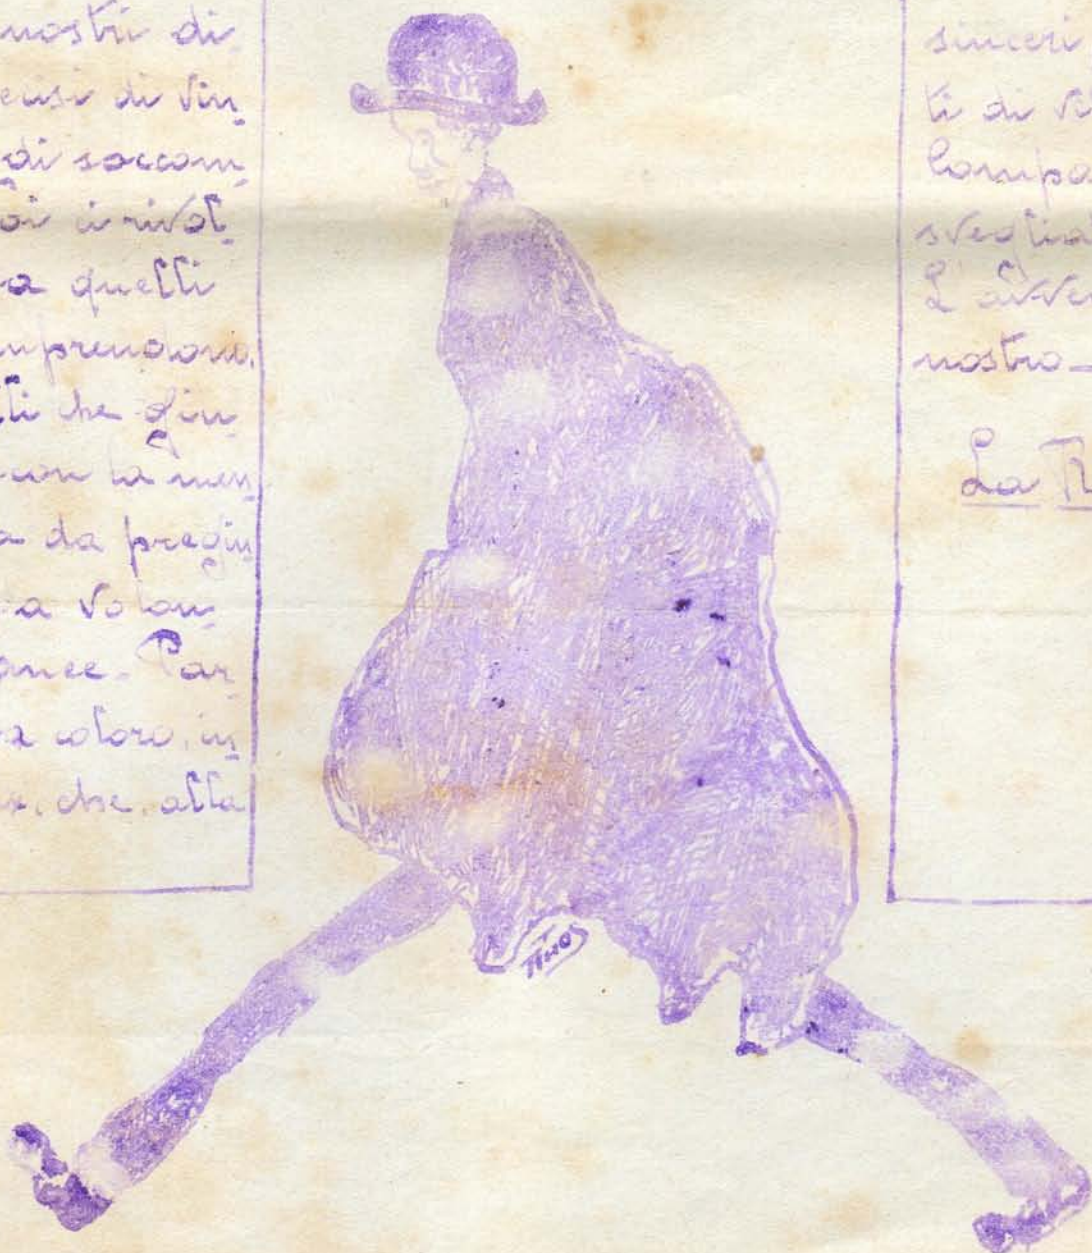 nostri di
cisi di vin
di soccom
oi ci rivol
a quelli
mprendono,
ti che giu
con la men
a da pregiu
a volon
anee. Par
a coloro, in
, che, alla
Tinos
sinceri
ti di vi
Compa
sveglia
L'avve
nostro_
La R